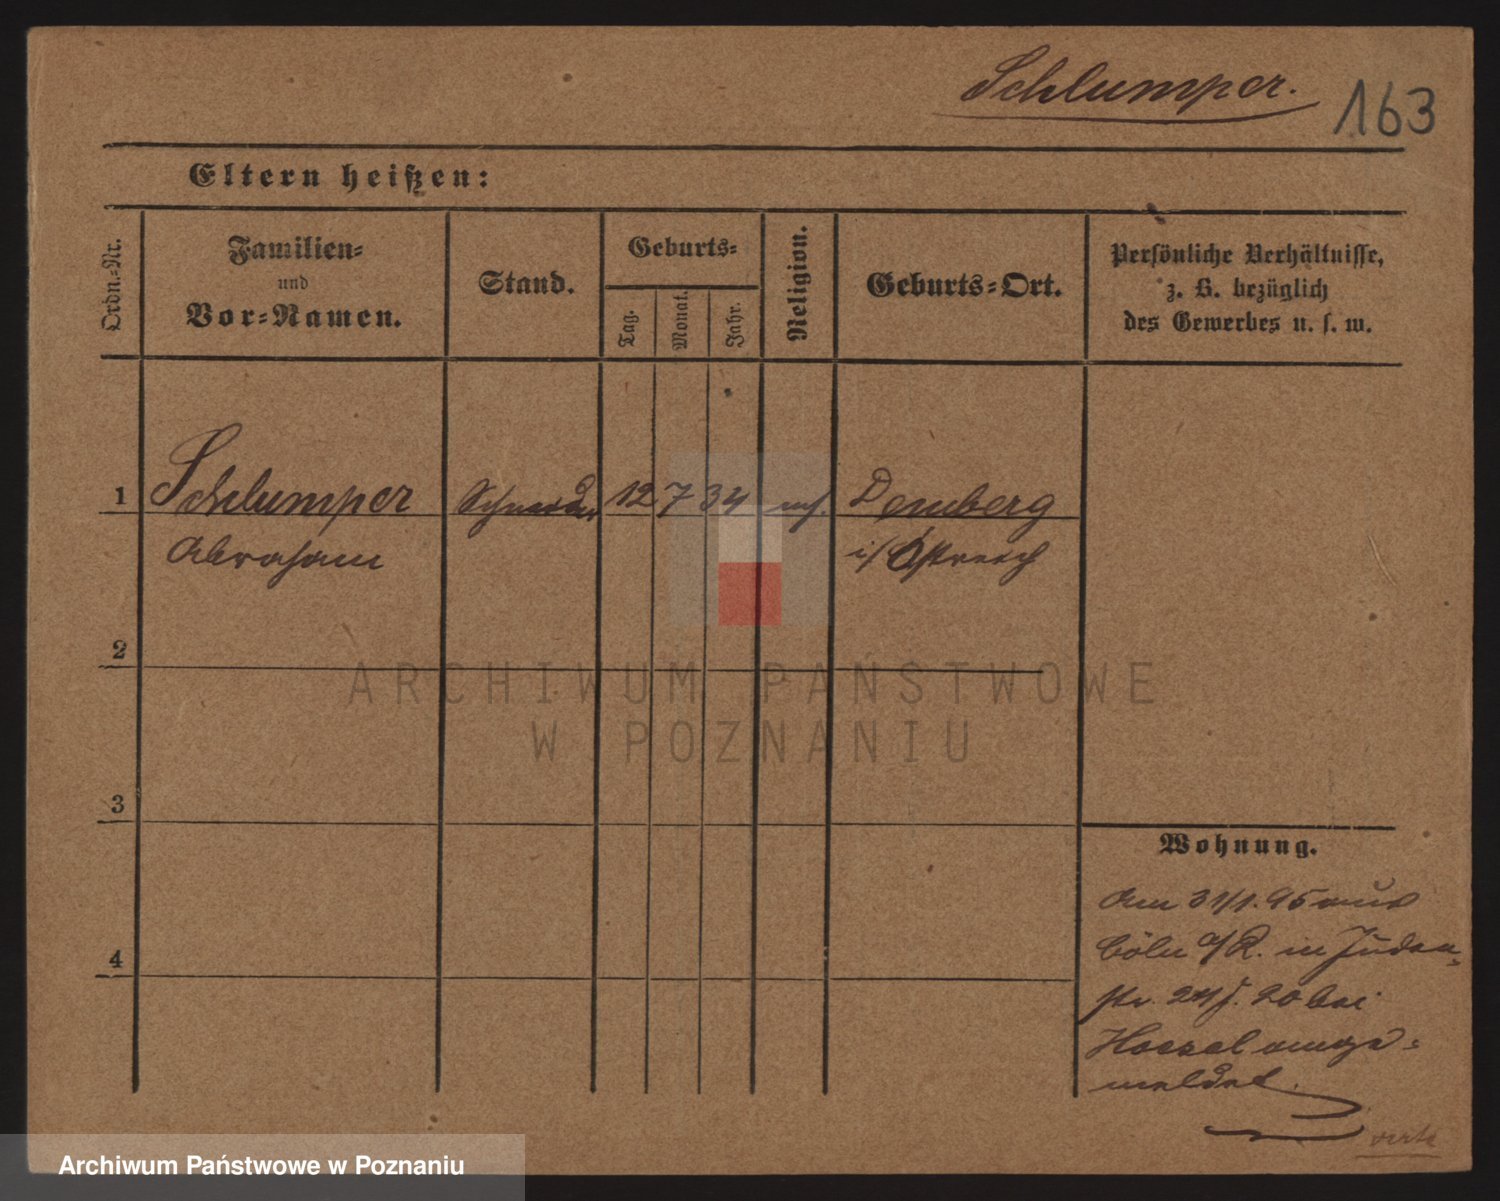 Schlumper.
163
Eltern heißen:
Ordn.-Nr.
Familien-
und
Vor-Namen.
Stand.
Geburts-
Tag.
Monat.
Jahr.
Religion.
Geburts-Ort.
Persönliche Verhältnisse,
z. B. bezüglich
des Gewerbes u. s. w.
1 Schlumper Schneider 12 7 34 Demberg
Abraham i/ Östreich
2
3
4
Wohnung.
Am 31/1. 95 aus
Cöln a/R. in Juden-
str. 20 bei
ange-
meldet.
ARCHIWUM PAŃSTWOWE
W POZNANIU
Archiwum Państwowe w Poznaniu